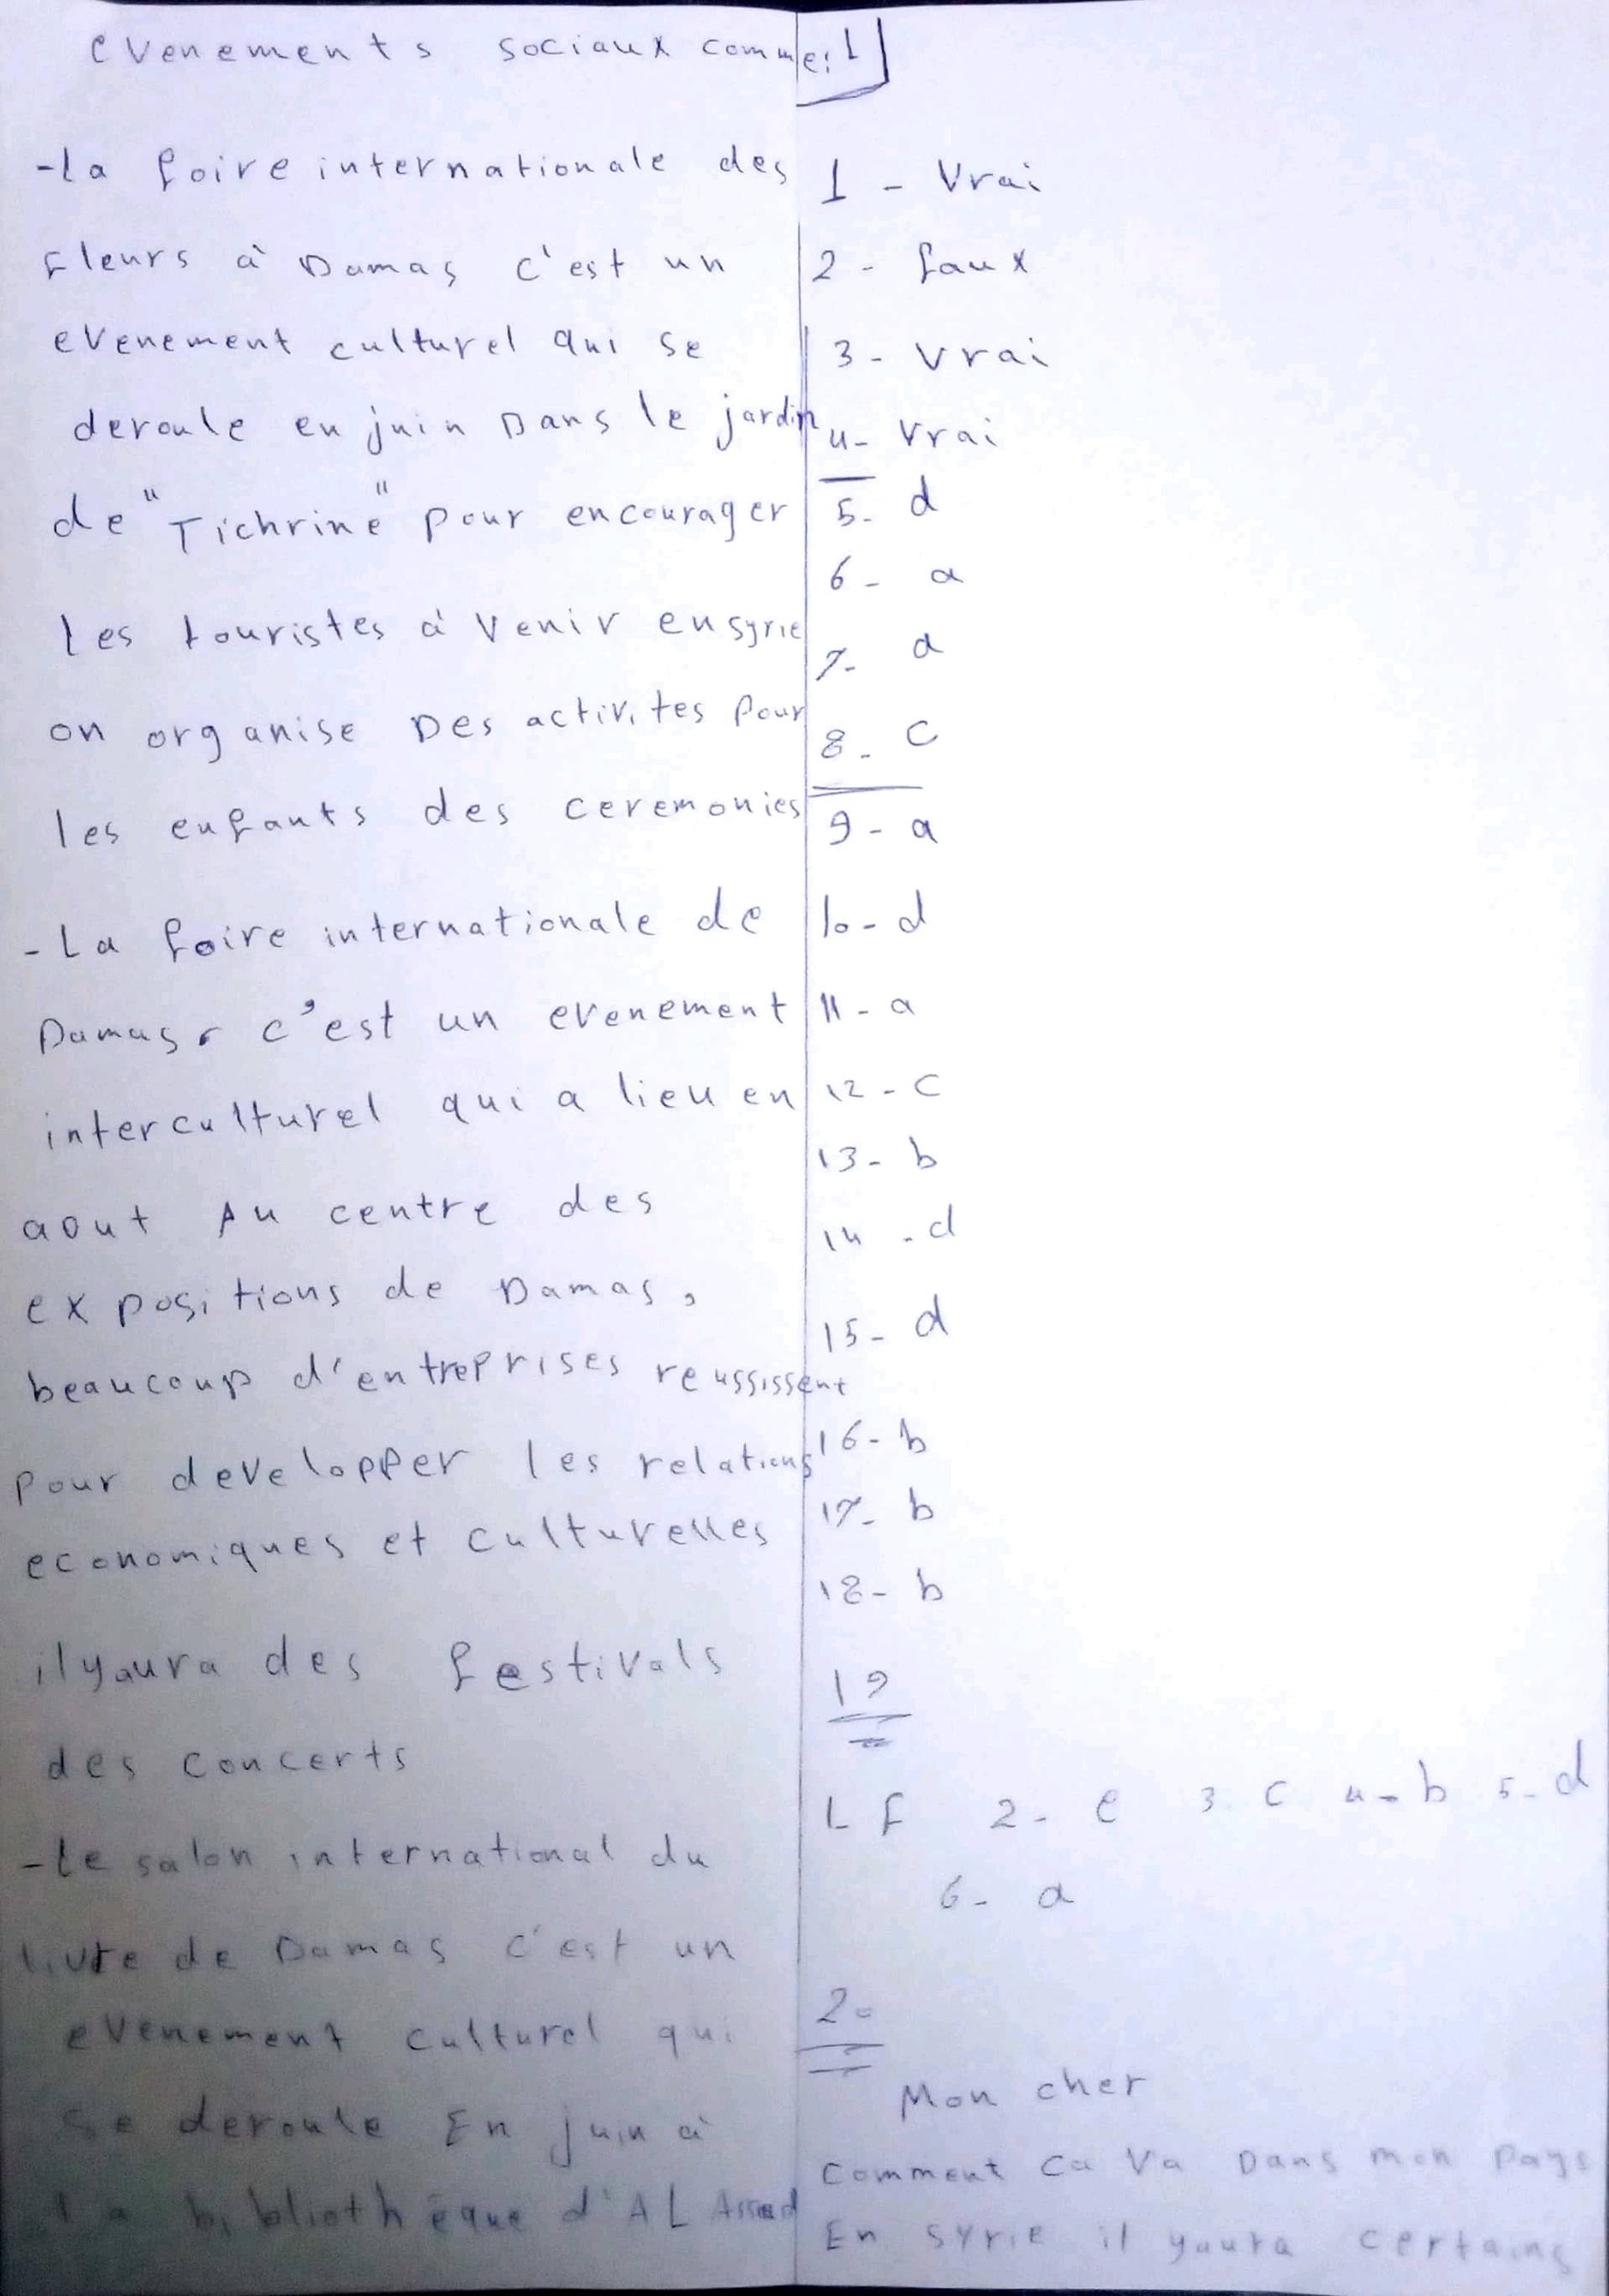 1
1 - Vrai
2 - faux
3 - Vrai
4 - Vrai
5 - d
6 - a
7 - a
8 - c
9 - a
10 - d
11 - a
12 - c
13 - b
14 - d
15 - d
16 - b
17 - b
18 - b
19
1- F 2- e 3- c 4- b 5- d
6- a
20
Mon cher
comment ca va Dans mon pays
En syrie il yaura certains
evenements sociaux comme:
-la foire internationale des
fleurs à Damas c'est un
evenement culturel qui se
deroule en juin Dans le jardin
de "Tichrine" pour encourager
les touristes à venir en syrie
on organise Des activites pour
les enfants des ceremonies
- La foire internationale de
Damas, c'est un evenement
interculturel qui a lieu en
aout Au centre des
expositions de Damas,
beaucoup d'entreprises reussissent
pour developper les relations
economiques et culturelles
il yaura des festivals
des concerts
-le salon international du
livre de Damas c'est un
evenement culturel qui
se deroule En juin à
la bibliothèque d'AL Assad